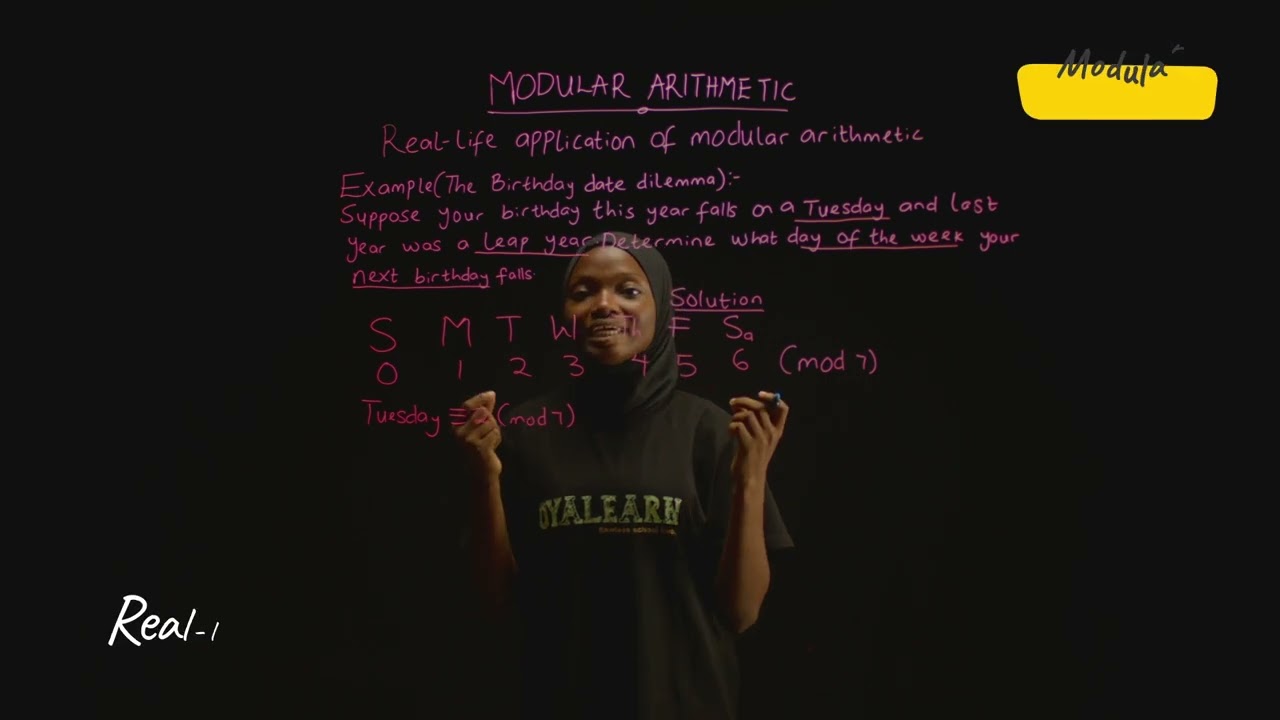 Modula
MODULAR ARITHMETIC
Real-life application of modular arithmetic
Example(The Birthday date dilemma):-
Suppose your birthday this year falls on a Tuesday and last
year was a leap year. Determine what day of the week your
next birthday falls.
Solution
S M T W Th F Sa
0 1 2 3 4 5 6 (mod 7)
Tuesday ≡ 2 (mod 7)
OYALEARN
Real-l